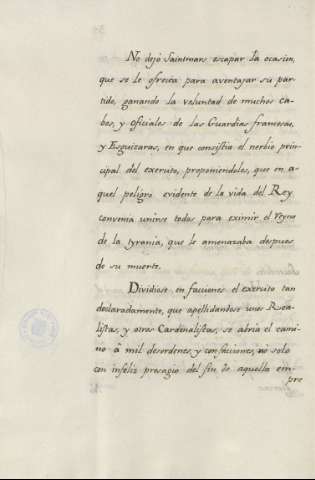 No dejó Saintmars escapar la ocasion,
que se le ofrecia para aventajar su par-
tido, ganando la voluntad de muchos ca-
bos, y oficiales de las Guardias francesas,
y Esguizaras, en que consistia el nerbio prin-
cipal del exercito, proponiendoles, que en a-
quel peligro evidente de la vida del Rey
convenia unirse todos para eximir el reyno
de la tyrania, que le amenazaba despues
de su muerte.
Dividiose en facciones el exercito tan
declaradamente, que apellidandose unos Rea-
listas, y otros Cardenalistas, se abria el cami-
no â mil desordenes, y confusiones, no solo
con infeliz presagio del fin de aquella em-
pre